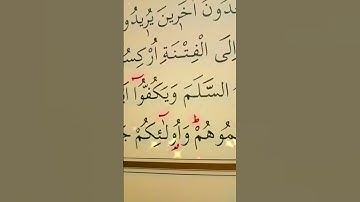 جِدُونَ اٰخَرٖينَ يُرٖيدُو
اِلَى الْفِتْنَةِ اُرْكِسُ
السَّلَمَ وَيَكُفُّٓوا اَ
مُوهُمْ وَاُو۬لٰٓئِكُمْ جَ